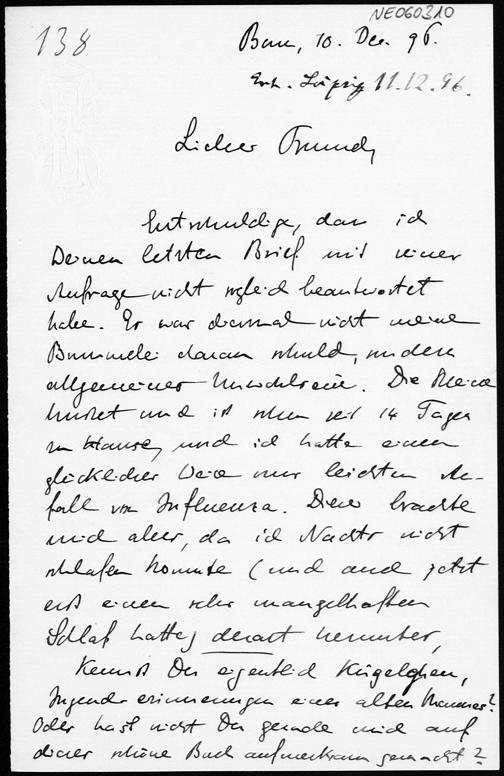 NE060310
138
Bonn, 10. Dec. 96.
Erh. Leipzig 11.12.96.
Lieber Freund,
Entschuldige, dass ich
Deinen letzten Brief mit seiner
Anfrage nicht sogleich beantwortet
habe. Es war diesmal nicht meine
Bummelei daran schuld, sondern
allgemeines Unwohlsein. Die Kleine
hustet und ist schon seit 14 Tagen
zu Hause, und ich hatte einen
glücklicher Weise nur leichten An-
fall von Influenza. Dieser brachte
mich aber, da ich Nachts nicht
schlafen konnte (und auch jetzt
erst einen sehr mangelhaften
Schlaf hatte) derart herunter,
Kennst Du eigentlich Kügelgen,
Jugenderinnerungen eines alten Mannes?
Oder hast nicht Du gerade mich auf
dieses schöne Buch aufmerksam gemacht?